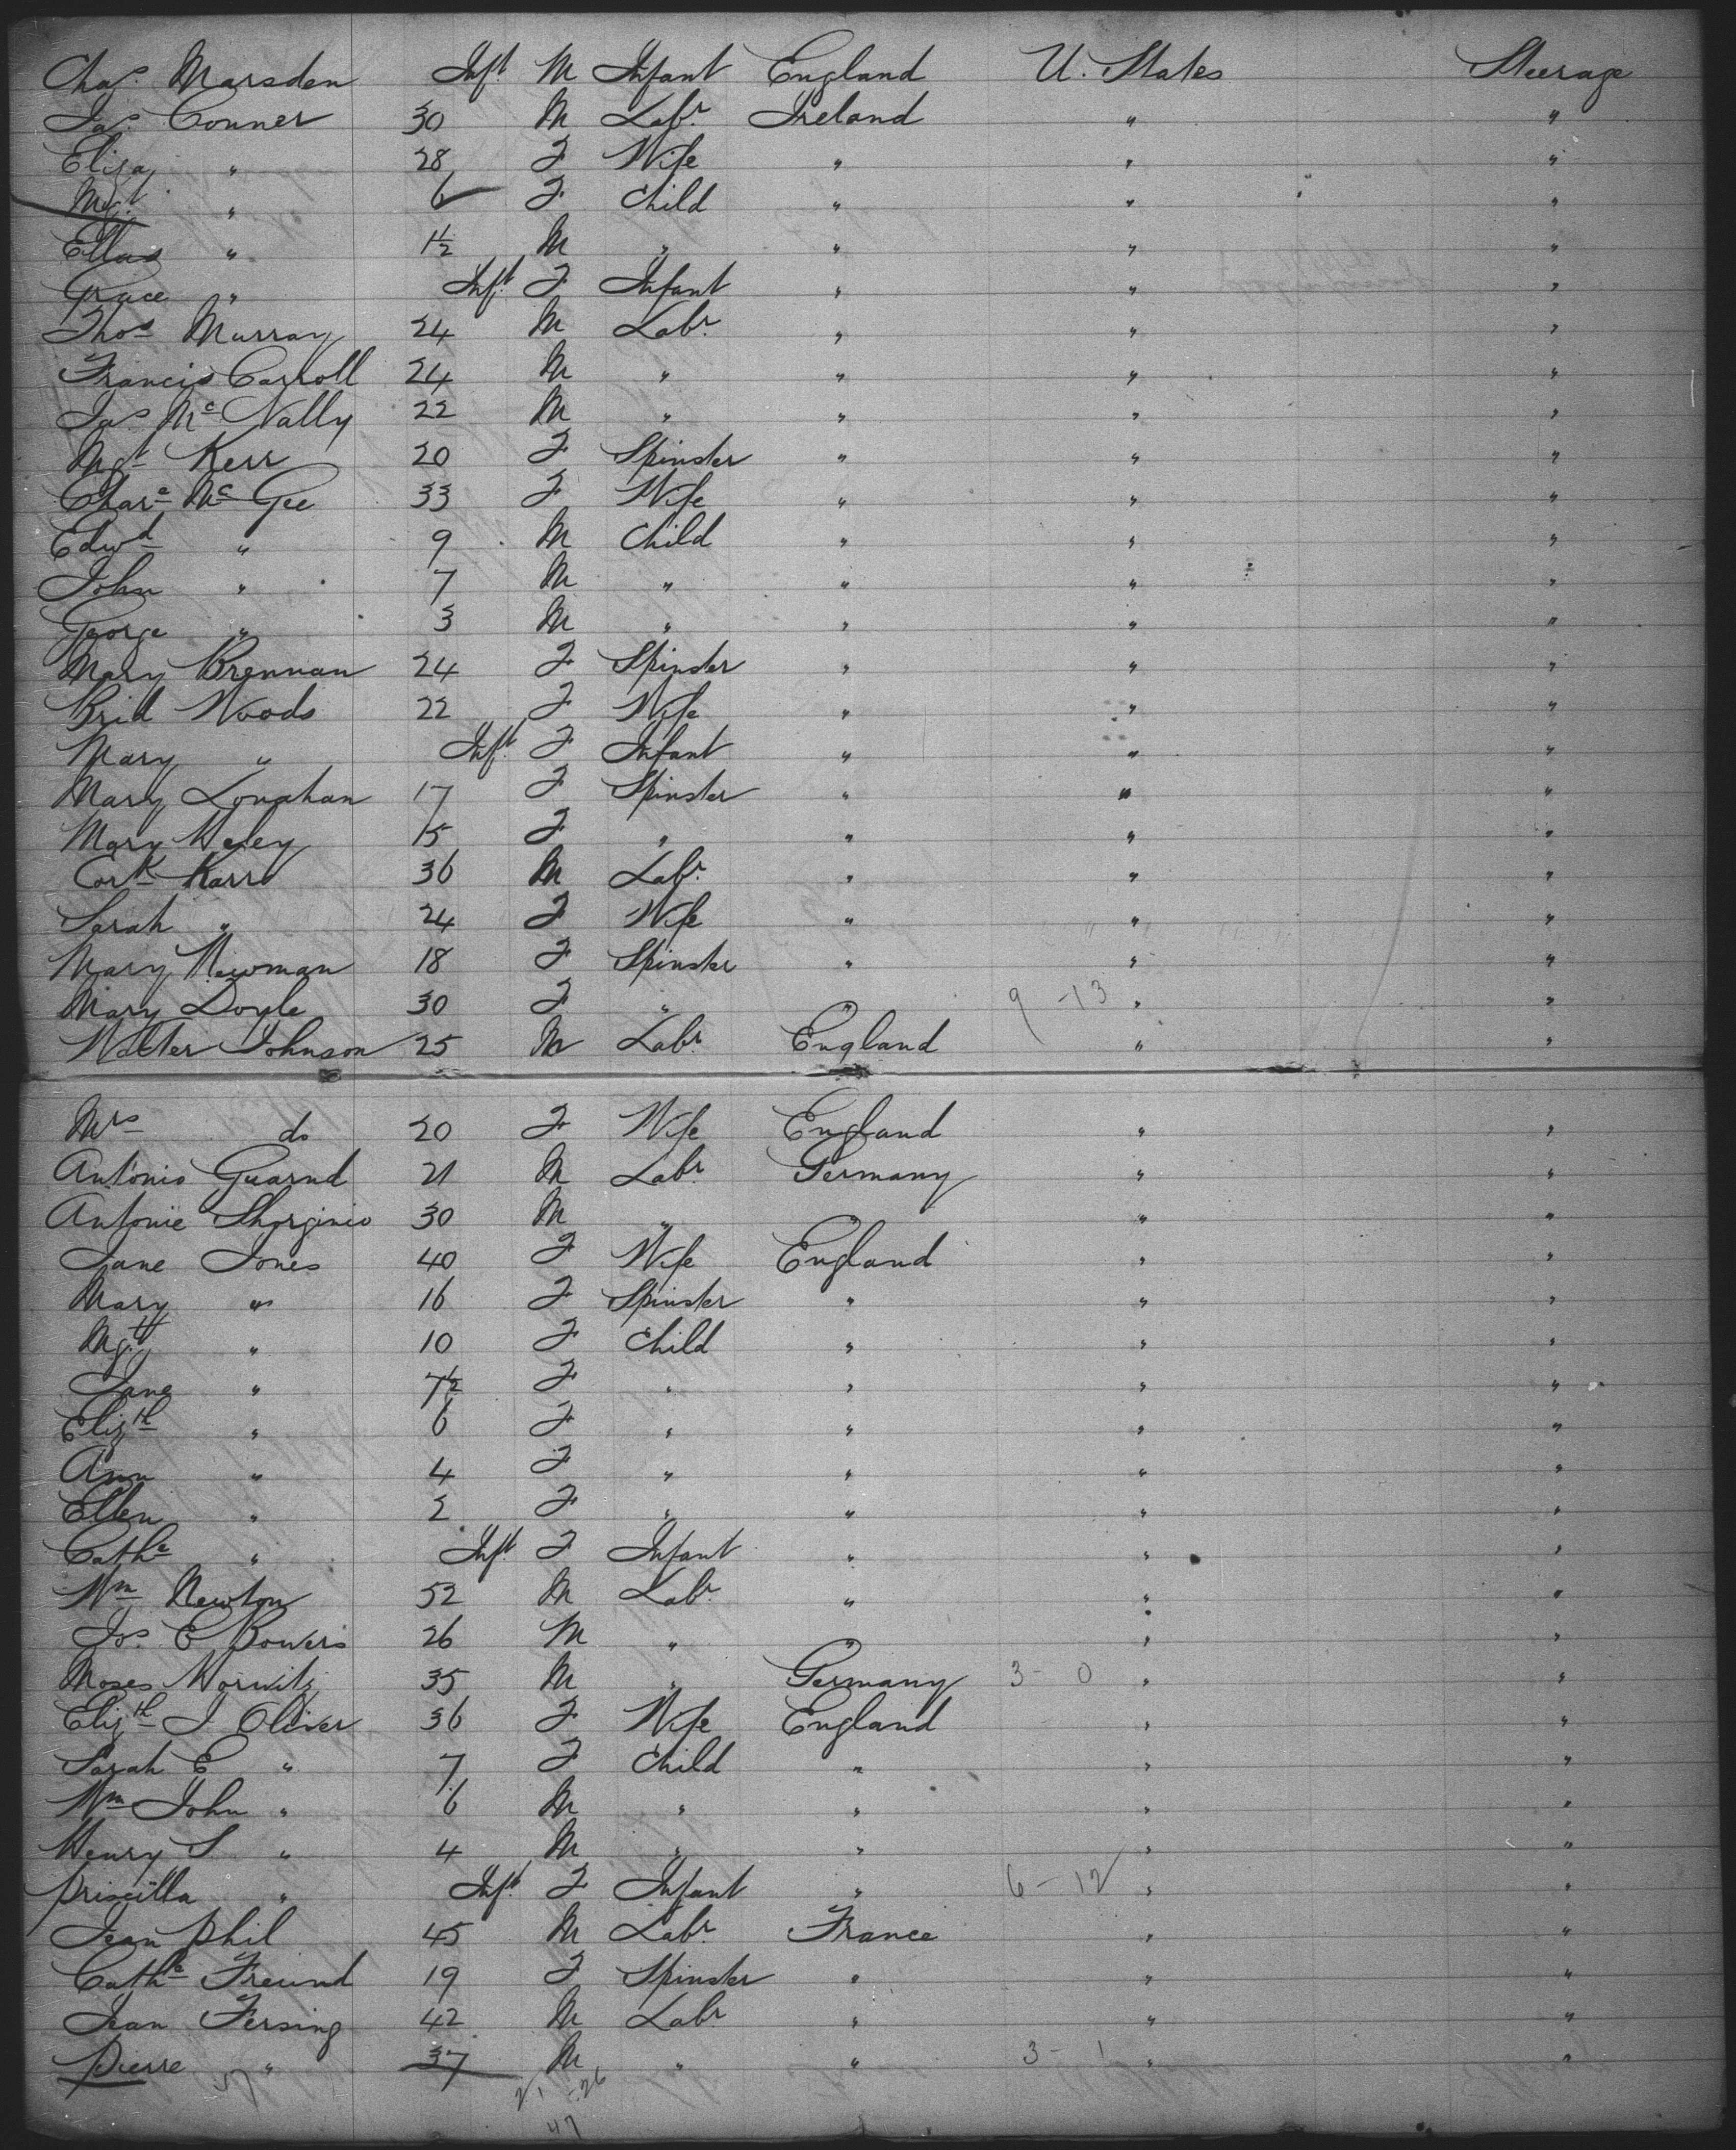 Chas. Marsden Inft. M Infant England U. States Steerage
Jas. Conner 30 M Labr. Ireland " "
Eliza " 28 F Wife " " "
Mgt. " 6 F Child " " "
" 1½ M " " " "
Grace " Inft. F Infant " " "
Thos Murray 24 M Labr. " " "
Francis Carroll 24 M " " " "
Jas McNally 22 M " " " "
Mgt Kerr 20 F Spinster " " "
Chare McGee 33 F Wife " " "
Edwd " 9 M Child " " "
John " 7 M " " " "
George " 3 M " " " "
Mary Brennan 24 F Spinster " " "
Brid Woods 22 F Wife " " "
Mary " Inft. F Infant " " "
Mary Lonahan 17 F Spinster " " "
Mary Heley 15 F " " " "
Karr 36 M Labr. " " "
Sarah " 24 F Wife " " "
Mary Newman 18 F Spinster " " "
Mary Doyle 30 F " " 9 - 13 " "
Walter Johnson 25 M Labr. England " "
Mrs do 20 F Wife England " "
Antonio Guarnd 21 M Labr. Germany " "
Antonie 30 M " " " "
Jane Jones 40 F Wife England " "
Mary " 16 F Spinster " " "
Mgt " 10 F Child " " "
Jane " 7½ F " " " "
Elizth " 6 F " " " "
Ann " 4 F " " " "
Ellen " 2 F " " " "
Cathe " Inft. F Infant " " "
Wm Newton 52 M Labr. " " "
Jos. E Bowers 26 M " " " "
Moses Horwitz 35 M " Germany 3 - 0 " "
Elizth J Oliver 36 F Wife England " "
Sarah E " 7 F Child " " "
Wm John " 6 M " " " "
Henry S " 4 M " " " "
Priscilla " Inft. F Infant " 6 - 12 " "
Jean Phil 45 M Labr. France " "
Cathe Freund 19 F Spinster " " "
Jean Fersing 42 M Labr " " "
Pierre " 37 M " " 3 - 1 " "
21 - 26
47